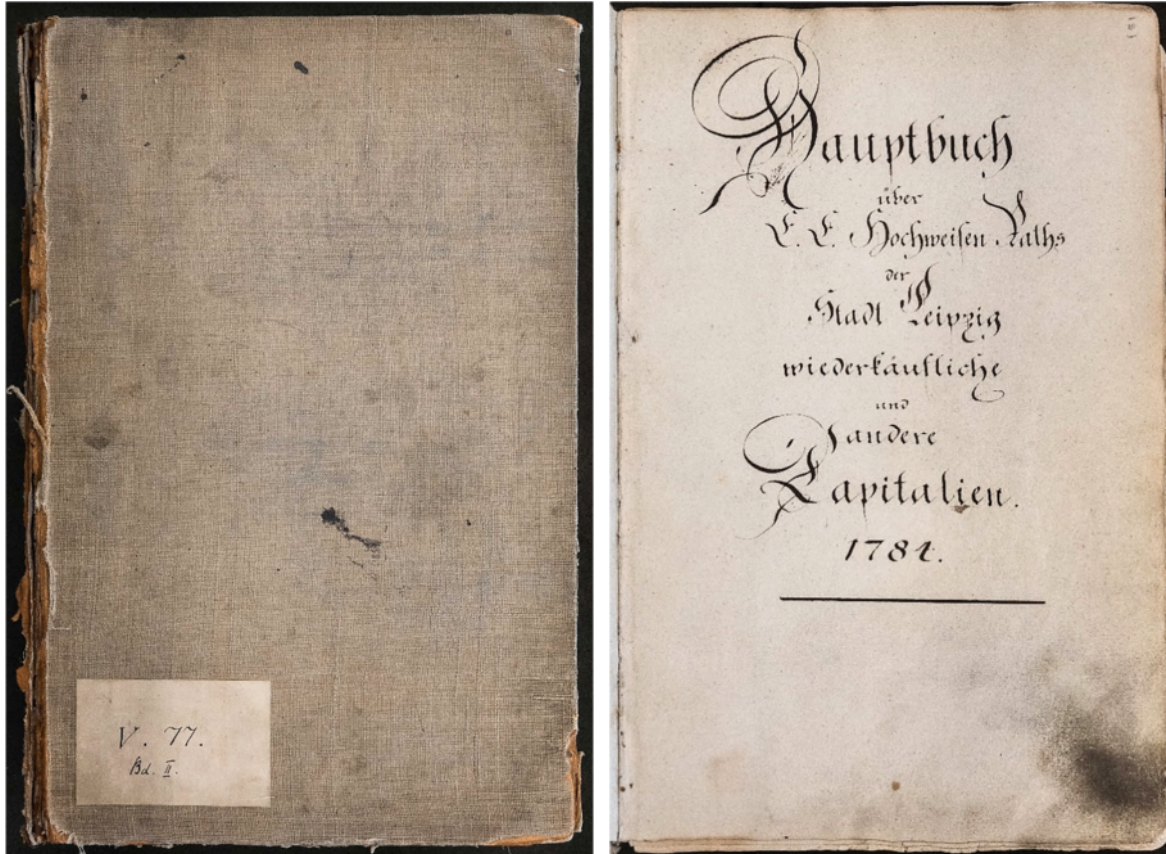 V. 77.
Bd. II.
Hauptbuch
über
E. E. Hochweisen Raths
der
Stadt Leipzig
wiederkäufliche
und
andere
Capitalien.
1784.